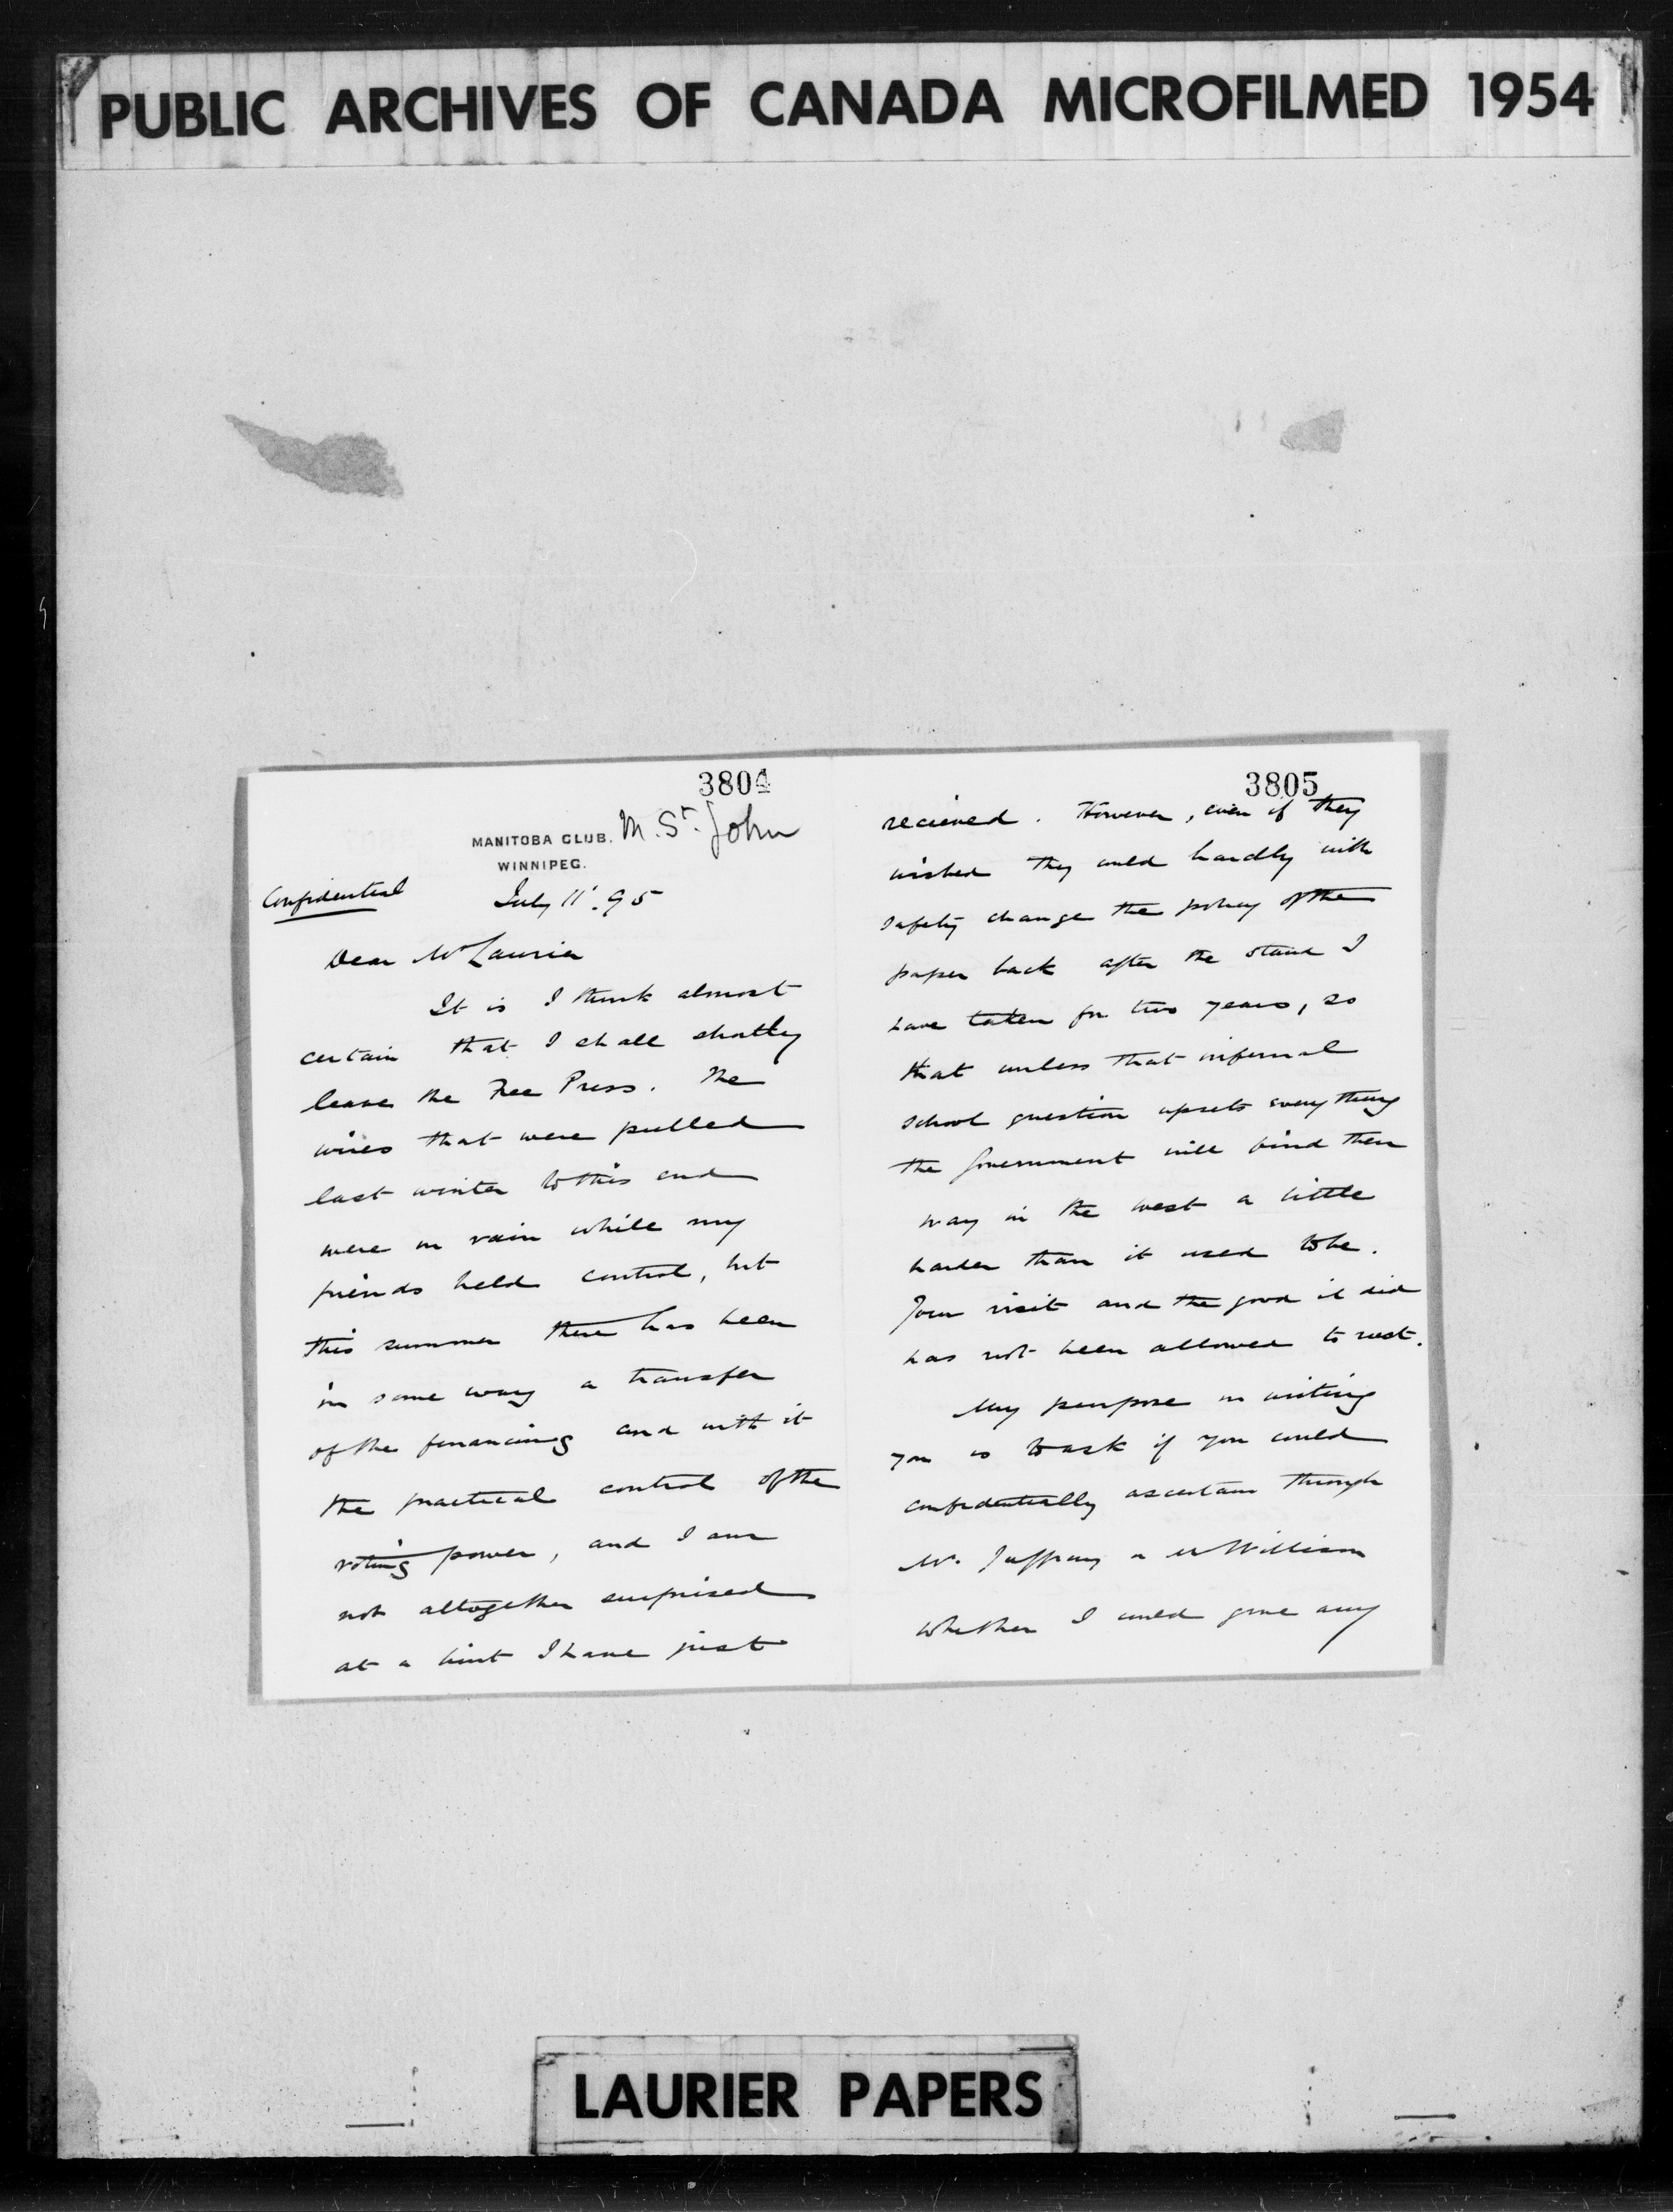 PUBLIC ARCHIVES OF CANADA MICROFILMED 1954
3804
MANITOBA CLUB. M. St. John
WINNIPEG.
Confidential July 11'. 95
Dear Mr Laurier
It is I think almost
certain that I shall shortly
leave the Free Press. The
wires that were pulled
last winter to this end
were in vain while my
friends held control, but
this summer there has been
in some way a transfer
of the financing and with it
the practical control of the
voting power, and I am
not altogether surprised
at a hint I have just
3805
recieved. However, even if they
wished they could hardly with
safety change the policy of the
paper back after the stand I
have taken for two years, so
that unless that infernal
school question upsets everything
the Government will find their
way in the west a little
harder than it used to be.
Your visit and the good it did
has not been allowed to rust.
My purpose in writing
you is to ask if you could
confidentially ascertain through
Mr. Jaffray or Mr Willison
whether I could give any
LAURIER PAPERS